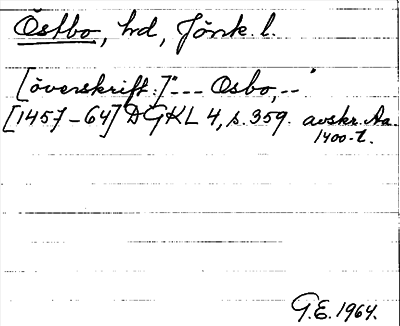 Östbo, hd, Jönk. l.
[överskrift:] "--- Osbo,--"
[1457-64] DGKL 4, s. 359. avskr. Aa.
1400-t.
G.E. 1964.